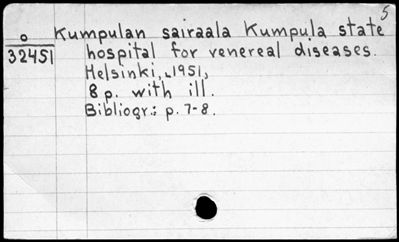 5
o Kumpulan sairaala Kumpula state
32451 hospital for venereal diseases.
Helsinki, 1951,
8 p. with ill.
Bibliogr.: p. 7-8.